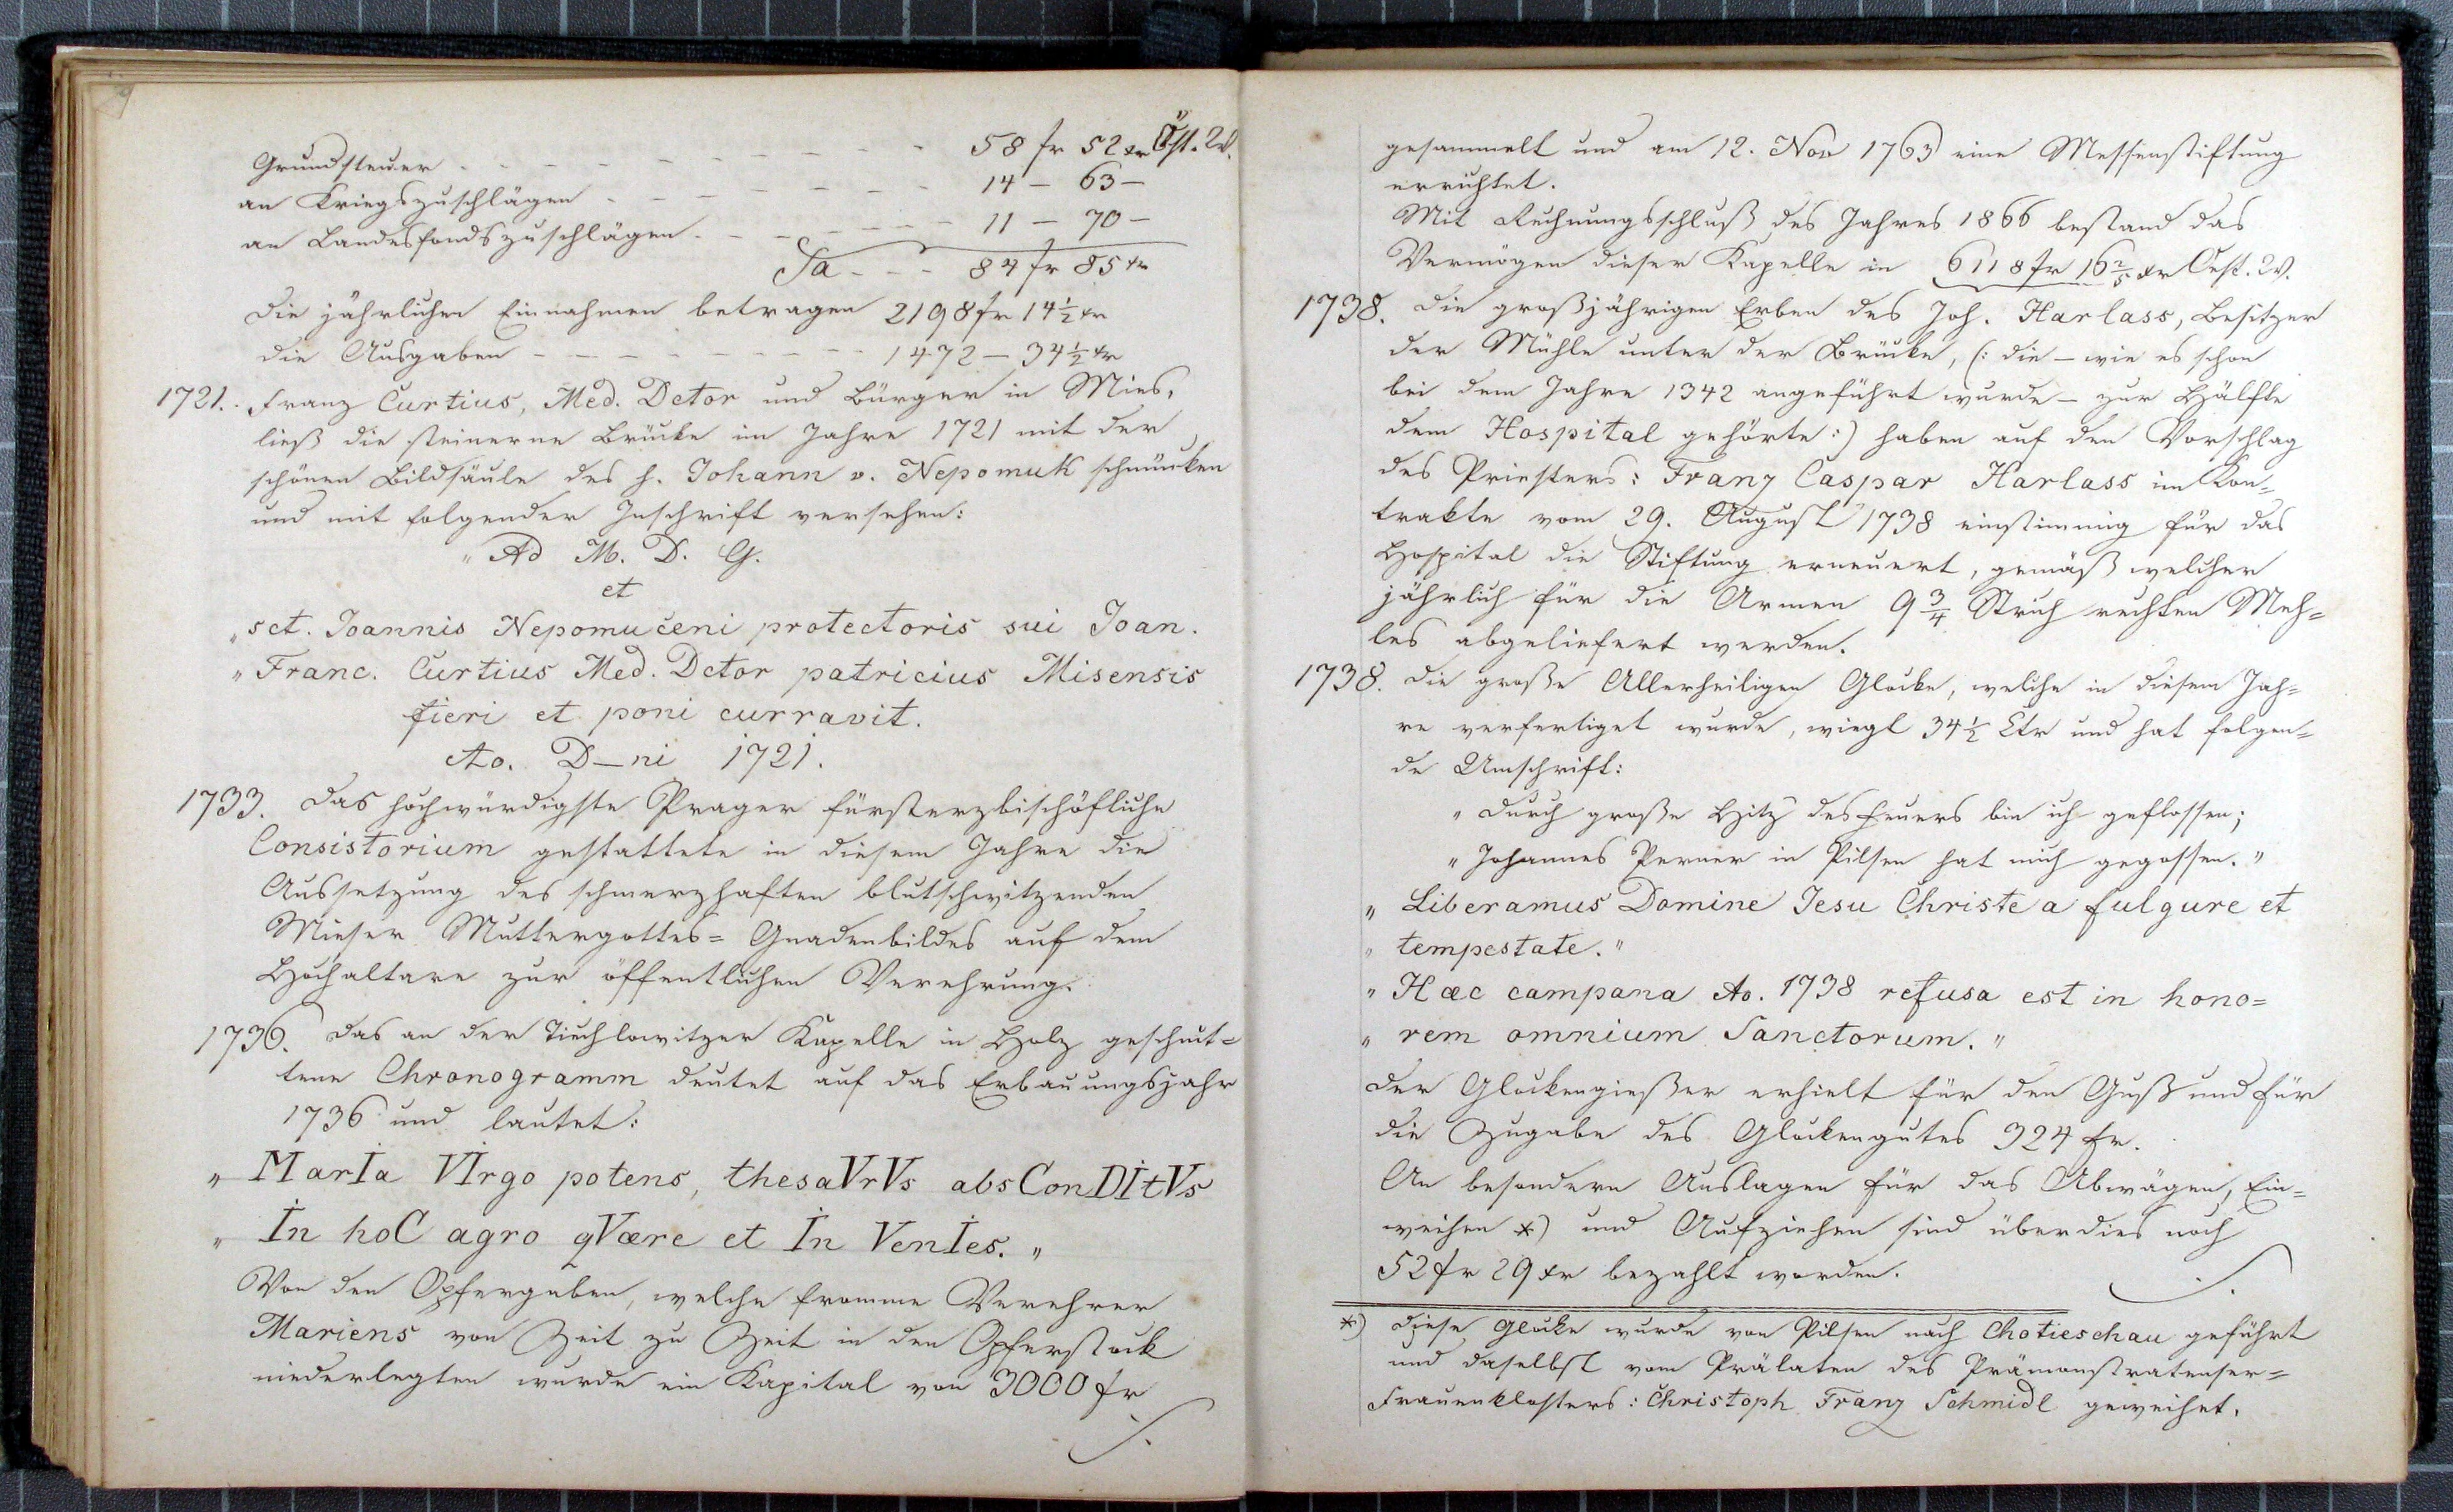 Grundsteuer - - - - - - - - - - - 58 fr 52 xr Öst. W.
an Kriegszuschlägen - - - - - - - - 14 - 63 -
an Landesfondszuschlägen - - - - - - 11 - 70 -
Sa - - - 84 fr 85 xr
Die jährlichen Einnahmen betragen 2198 fr 14 1/2 xr
die Ausgaben - - - - - - - - 1472 - 34 1/2 xr
1721. Franz Curtius, Med. Dctor und Bürger in Mies,
ließ die steinerne Brücke im Jahre 1721 mit der
schönen Bildsäule des h. Johann v. Nepomuk schmücken
und mit folgender Inschrift versehen:
„Ad M. D. G.
et
„sct. Joannis Nepomučeni protectoris sui Joan.
„Franc. Curtius Med. Dctor patricius Misensis
fieri et poni curravit.
Ao. D–ni 1721.
1733. Das hochwürdigste Prager fürsterzbischöfliche
Consistorium gestattete in diesem Jahre die
Aussetzung des schmerzhaften blutschwitzenden
Mieser Muttergottes= Gnadenbildes auf dem
Hochaltare zur öffentlichen Verehrung.
1736. Das an der Tiechlowitzer Kapelle in Holz geschnit=
tene Chronogramm deutet auf das Erbauungsjahr
1736 und lautet:
„MarIa VIrgo potens, thesaVrVs absConDItVs
„In hoC agro qVære et In VenIes."
Von den Opfergaben, welche fromme Verehrer
Mariens von Zeit zu Zeit in den Opferstock
niederlegten wurde ein Kapital von 3000 fr
./.
gesammelt und am 12. Nov 1763 eine Messenstiftung
errichtet.
Mit Rechnungsschluß des Jahres 1866 bestand das
Vermögen dieser Kapelle in 6118 fr 16 2/5 xr Oest. W.
1738. Die großjährigen Erben des Joh. Harlass, Besitzer
der Mühle unter der Brücke, (: die – wie es schon
bei dem Jahre 1342 angeführt wurde – zur Hälfte
dem Hospital gehörte :) haben auf den Vorschlag
des Priesters: Franz Caspar Harlass im Kon=
trakte vom 29. August 1738 einstimmig für das
Hospital die Stiftung erneuert, gemäß welcher
jährlich für die Armen 9 3/4 Strich rechten Meh=
les abgeliefert werden.
1738. Die große Allerheiligen Glocke, welche in diesem Jah=
re verfertiget wurde, wiegt 34 1/2 Ctr und hat folgen=
de Umschrift:
„Durch große Hitz des Feuers bin ich geflossen;
„Johannes Perner in Pilsen hat mich gegossen."
„Liberamus Domine Jesu Christe a fulgure et
„tempestate."
„Hæc campana Ao. 1738 refusa est in hono=
„rem omnium Sanctorum."
Der Glockengießer erhielt für den Guß und für
die Zugabe des Glockengutes 324 fr.
An besondern Auslagen für das Abwägen, Ein=
weihen *) und Aufziehen sind überdies noch
52 fr 29 xr bezahlt worden.
./.
*) Diese Glocke wurde von Pilsen nach Chotieschau geführt
und daselbst vom Prälaten des Prämonstratenser=
Frauenklosters: Christoph Franz Schmidl geweihet.